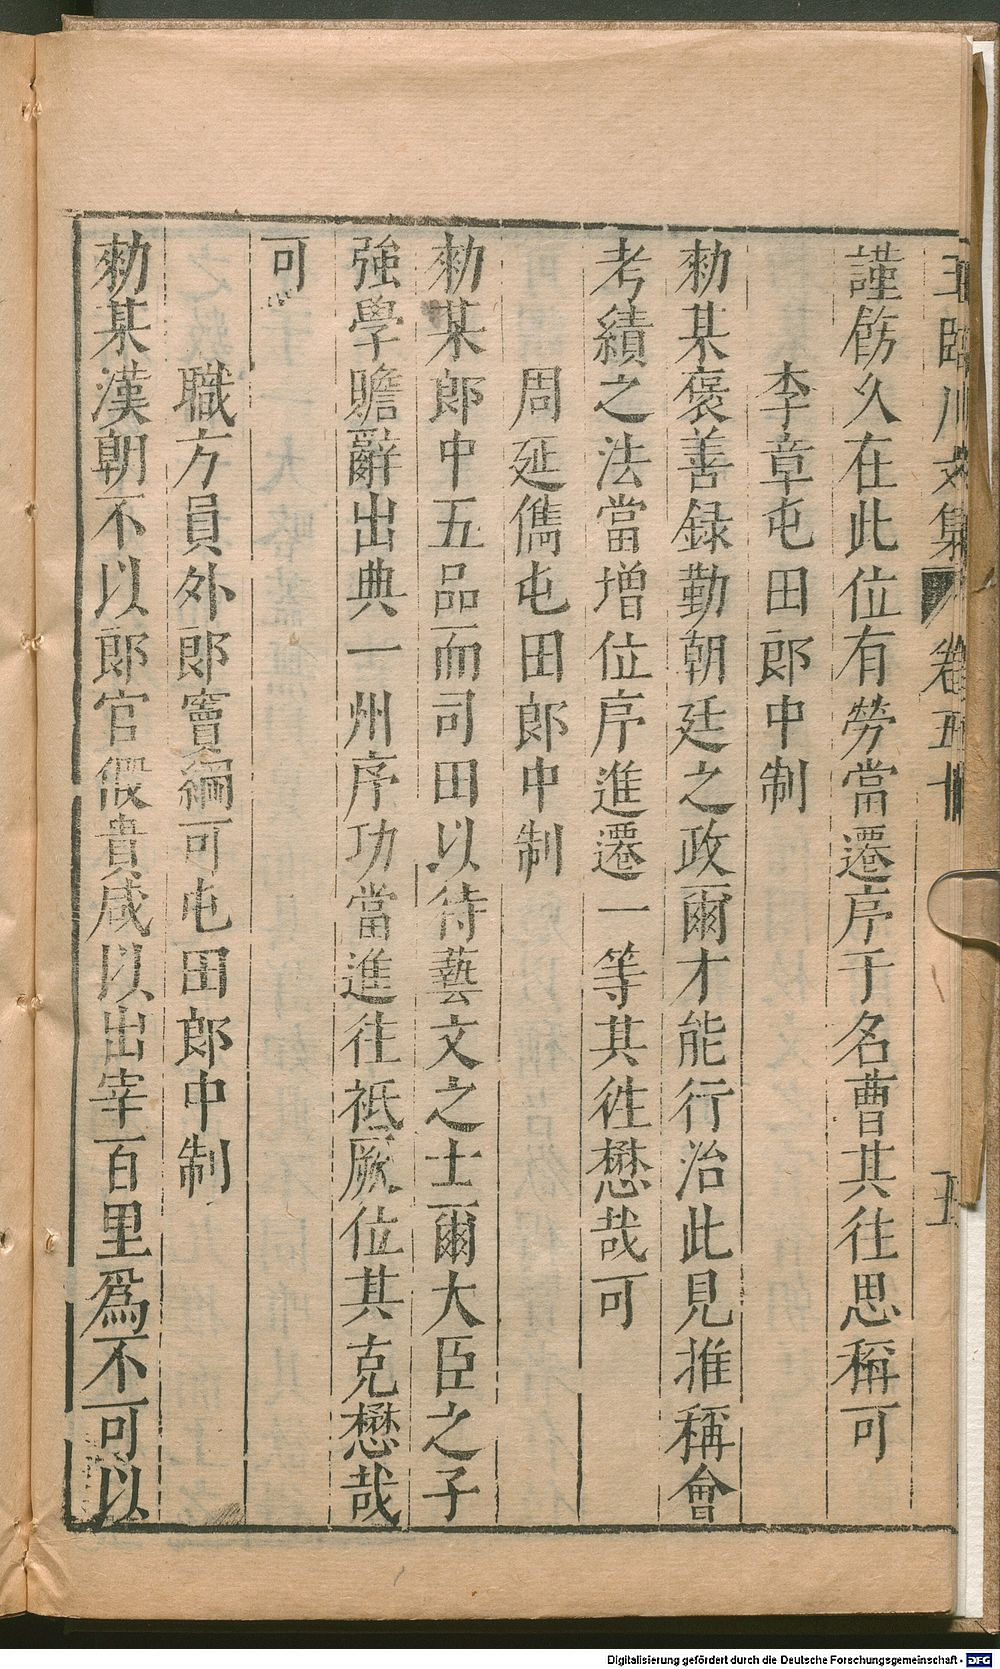 王臨川文集 卷五十 五
謹飭久在此位有勞當遷序于名曹其往思稱可
李章屯田郎中制
勑某褒善録勤朝廷之政爾才能行治此見推稱會
考績之法當增位序進遷一等其徃懋哉可
周延儁屯田郎中制
勑某郎中五品而司田以待藝文之士爾大臣之子
強學贍辭出典一州序功當進往祗厥位其克懋哉
可
職方員外郎竇綱可屯田郎中制
勑某漢朝不以郎官假貴戚以出宰百里爲不可以
Digitalisierung gefördert durch die Deutsche Forschungsgemeinschaft - DFG